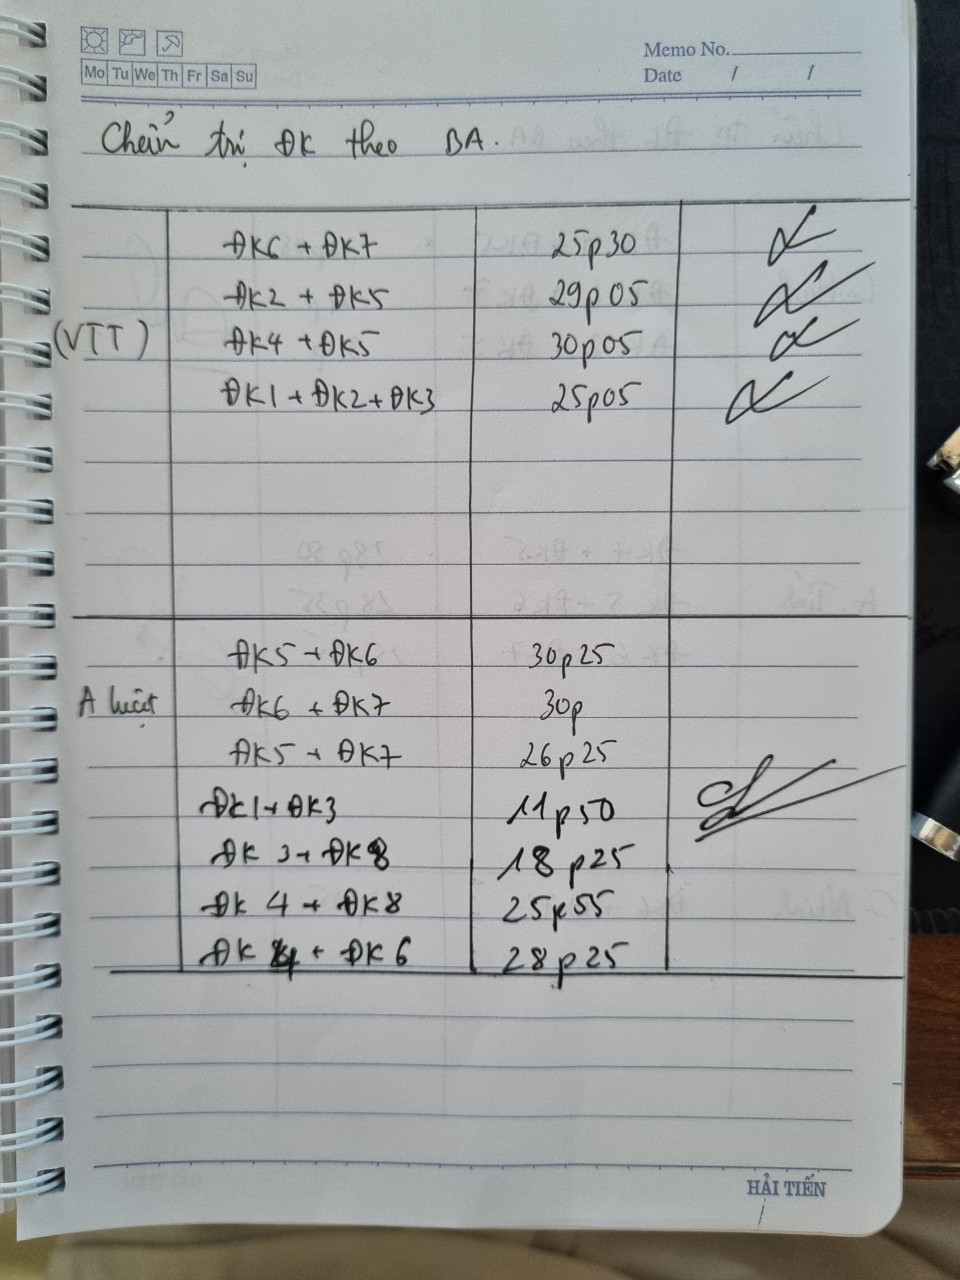 Memo No.
Mo Tu We Th Fr Sa Su
Date / /
Chẩn trị ĐK theo BA.
ĐK6 + ĐK7 25p30
ĐK2 + ĐK5 29p05
(VTT) ĐK4 + ĐK5 30p05
ĐK1 + ĐK2 + ĐK3 25p05
ĐK5 + ĐK6 30p25
A luật ĐK6 + ĐK7 30p
ĐK5 + ĐK7 26p25
ĐK1 + ĐK3 11p50
ĐK 3 + ĐK8 18p25
ĐK 4 + ĐK8 25p55
ĐK 4 + ĐK 6 28p25
HẢI TIẾN